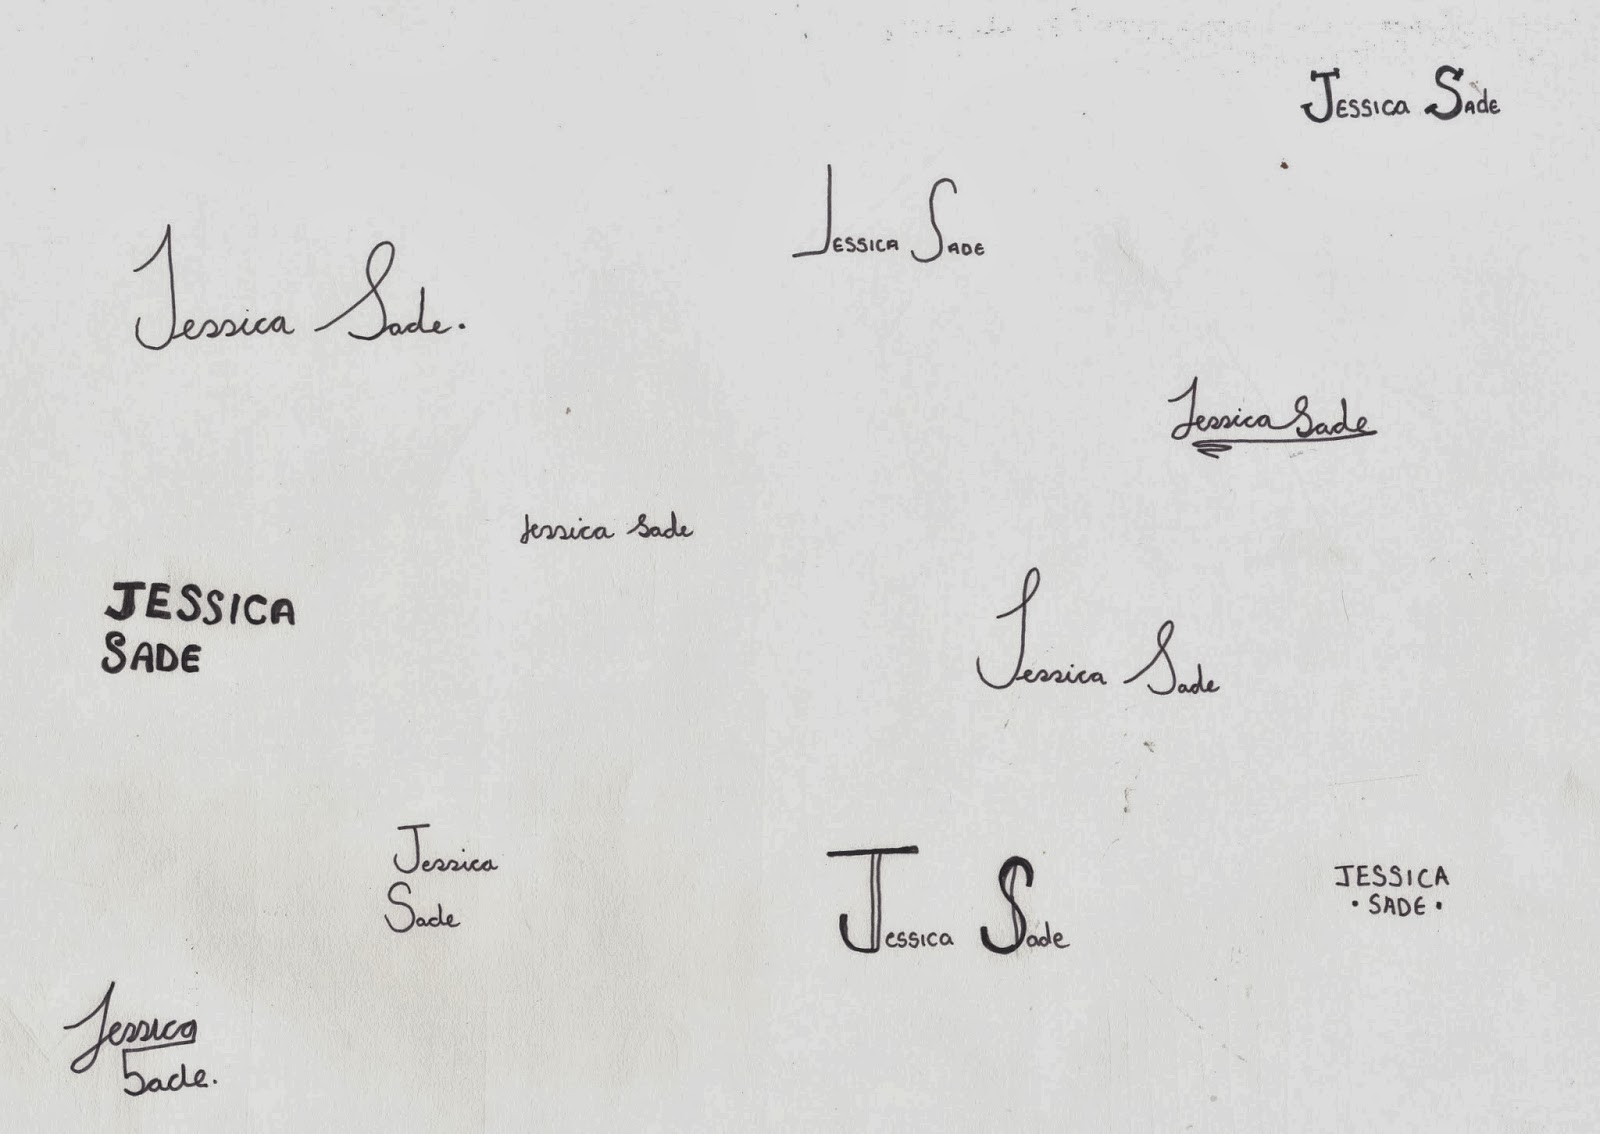 Jessica Sade
JESSICA SADE
Jessica Sade.
Jessica Sade
Jessica Sade
JESSICA
SADE
Jessica Sade
Jessica
Sade
Jessica Sade
JESSICA
• SADE •
Jessica
Sade.